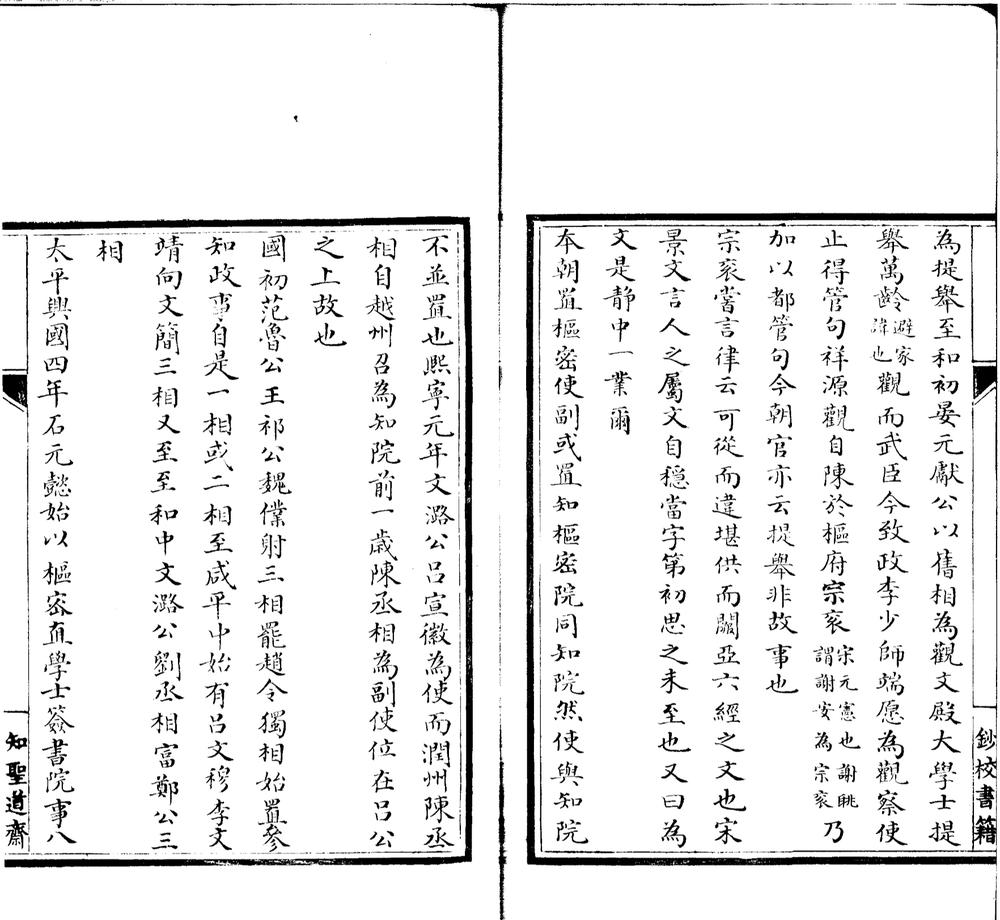 為提舉至和初晏元獻公以舊相為觀文殿大學士提
舉萬齡避家諱也觀而武臣今致政李少師端愿為觀察使
止得管句祥源觀自陳於樞府宗衮宋元憲也謝眺謂謝安為宗衮乃
加以都管句今朝官亦云提舉非故事也
宗衮嘗言律云可從而違堪供而闕亞六經之文也宋
景文言人之屬文自穩當字第初思之未至也又曰為
文是静中一業爾
本朝置樞密使副或置知樞密院同知院然使與知院
鈔校書籍
不並置也熙寧元年文潞公呂宣徽為使而潤州陳丞
相自越州召為知院前一歲陳丞相為副使位在呂公
之上故也
國初范魯公王祁公魏僕射三相罷趙令獨相始置參
知政事自是一相或二相至咸平中始有呂文穆李文
靖向文簡三相又至至和中文潞公劉丞相富鄭公三
相
太平興國四年石元懿始以樞密直學士簽書院事八
知聖道齋